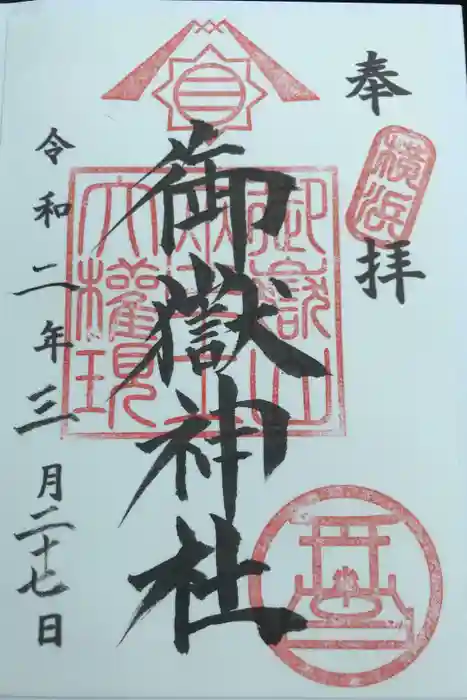 奉拝
横浜
御嶽神社
御嶽山
大権現
令和二年三月二十七日